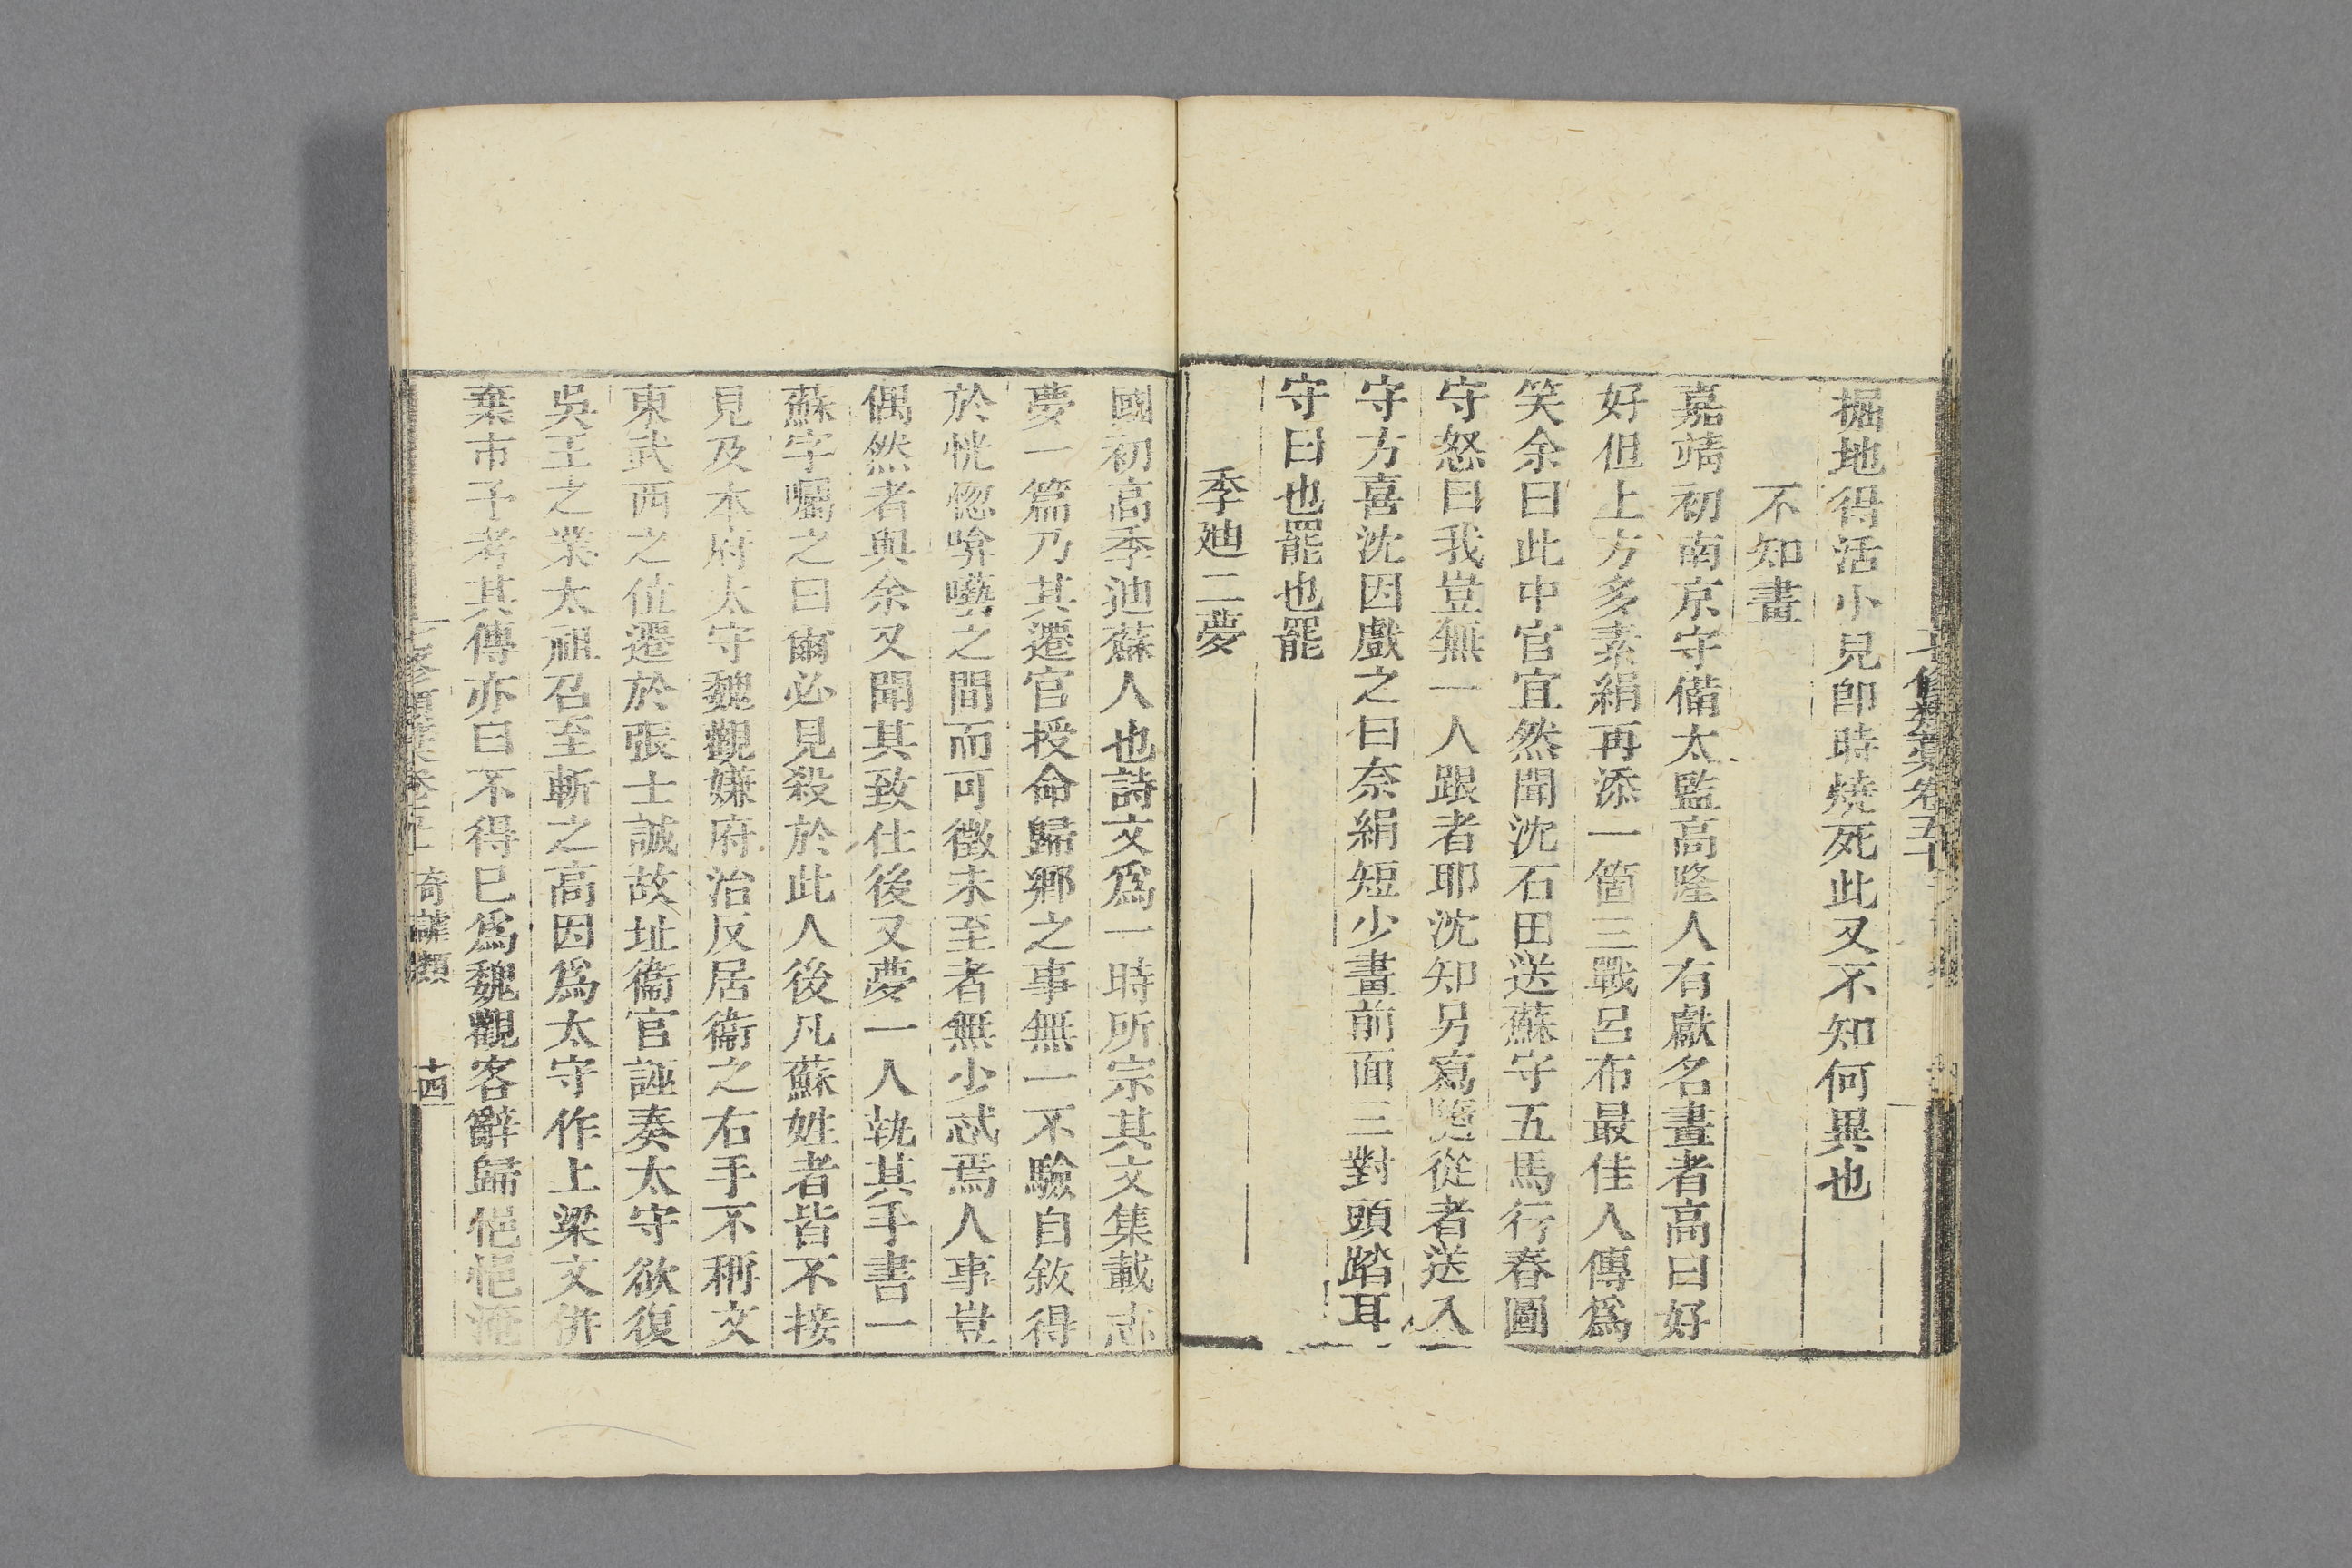 掘地得活小見卽時燒死此又不知何異也
不知畫
嘉靖初南京守備太監高隆人有獻名畫者高曰好
好但上方多素絹再添一箇三戰呂布最佳人傳爲
笑余曰此中官宜然聞沈石田送蘇守五馬行春圖
守怒曰我豈無一人跟者耶沈知另寫隨從者送入
守方喜沈因戲之曰奈絹短少畫前面三對頭踏耳
守曰也罷也罷
季廸二夢
國初高季迪蘇人也詩文爲一時所宗其文集載志
夢一篇乃其遷官授命歸鄉之事無一不驗自敘得
於恍惚喻囈之間而可徵未至者無少忒焉人事豈
偶然者與余又聞其致仕後又夢一人執其手書一
蘇字囑之曰爾必見殺於此人後凡蘇姓者皆不接
見及本府太守魏觀嫌府治反居衞之右手不稱文
東武西之位遷於張士誠故址衞官誣奏太守欲復
吳王之業太祖召至斬之高因爲太守作上梁文倂
棄市予考其傳亦曰不得已爲魏觀客辭歸悒悒淹
七修類稾卷五十 奇謔類 十四